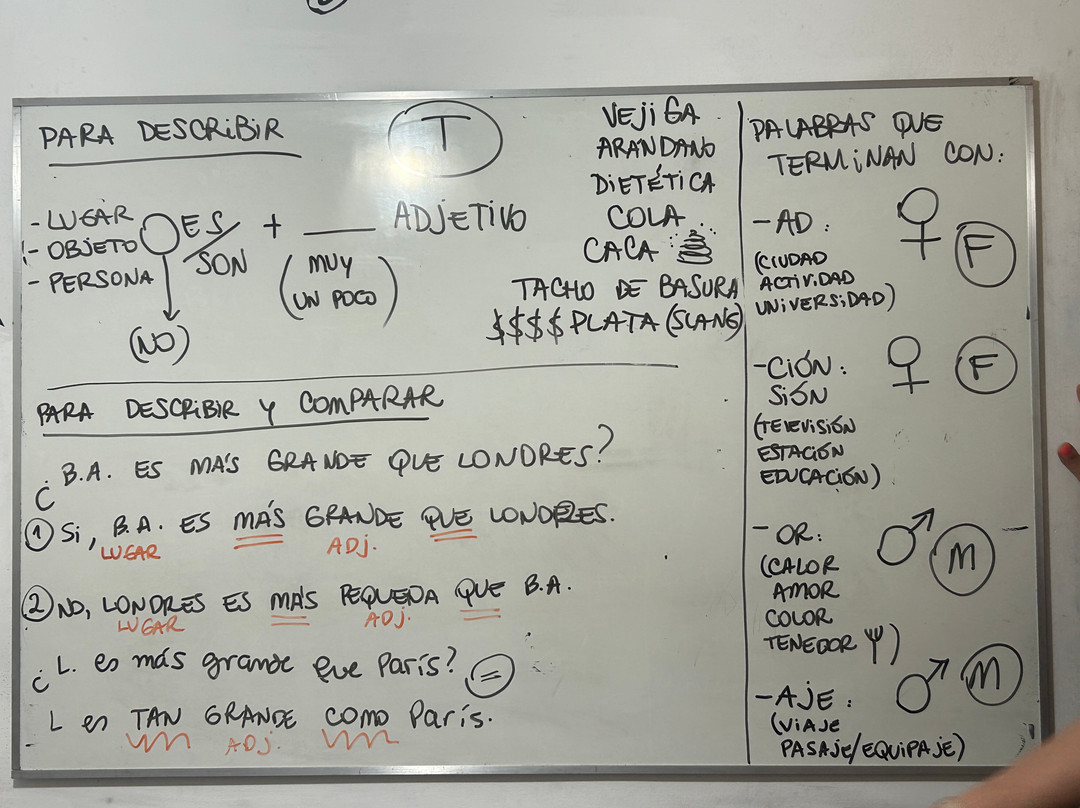 PARA DESCRIBIR
T
- LUGAR
- OBJETO
- PERSONA
ES/
SON
+ ____ ADJETIVO
(MUY
UN POCO)
(NO)
VEJIGA
ARANDANO
DIETÉTICA
COLA
CACA
TACHO DE BASURA
$$$$ PLATA (SLANG)
PARA DESCRIBIR Y COMPARAR
¿B.A. ES MÁS GRANDE QUE LONDRES?
① Si, B.A. ES MÁS GRANDE QUE LONDRES.
LUGAR ADJ.
② NO, LONDRES ES MÁS PEQUEÑA QUE B.A.
LUGAR ADJ.
¿L. es más grande que París? =
L es TAN GRANDE COMO París.
ADJ.
PALABRAS QUE
TERMINAN CON:
- AD: ♀ F
(CIUDAD
ACTIVIDAD
UNIVERSIDAD)
- CIÓN: ♀ F
SIÓN
(TELEVISIÓN
ESTACIÓN
EDUCACIÓN)
- OR: ♂ M
(CALOR
AMOR
COLOR
TENEDOR)
- AJE: ♂ M
(VIAJE
PASAJE/EQUIPAJE)